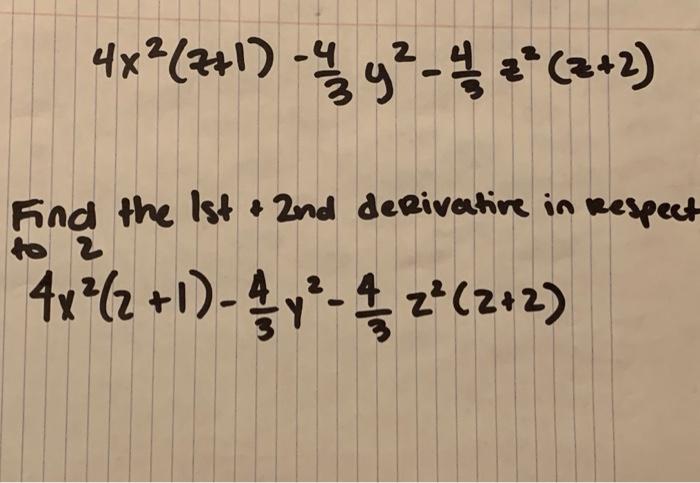 4x²(z+1) - 4/3 y² - 4/3 z² (z+2)
Find the 1st + 2nd derivative in respect
to z
4x²(z +1) - 4/3 y² - 4/3 z² (z+2)